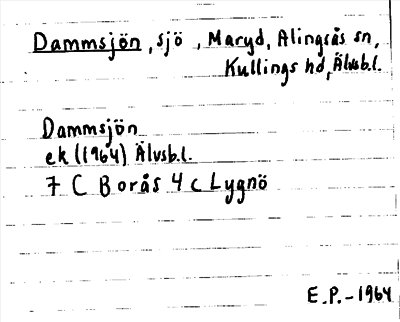 Dammsjön, sjö, Maryd, Alingsås sn,
Kullings hd, Älvsb.l.
Dammsjön
ek (1964) Älvsb.l.
7 C Borås 4 c Lygnö
E.P.-1964